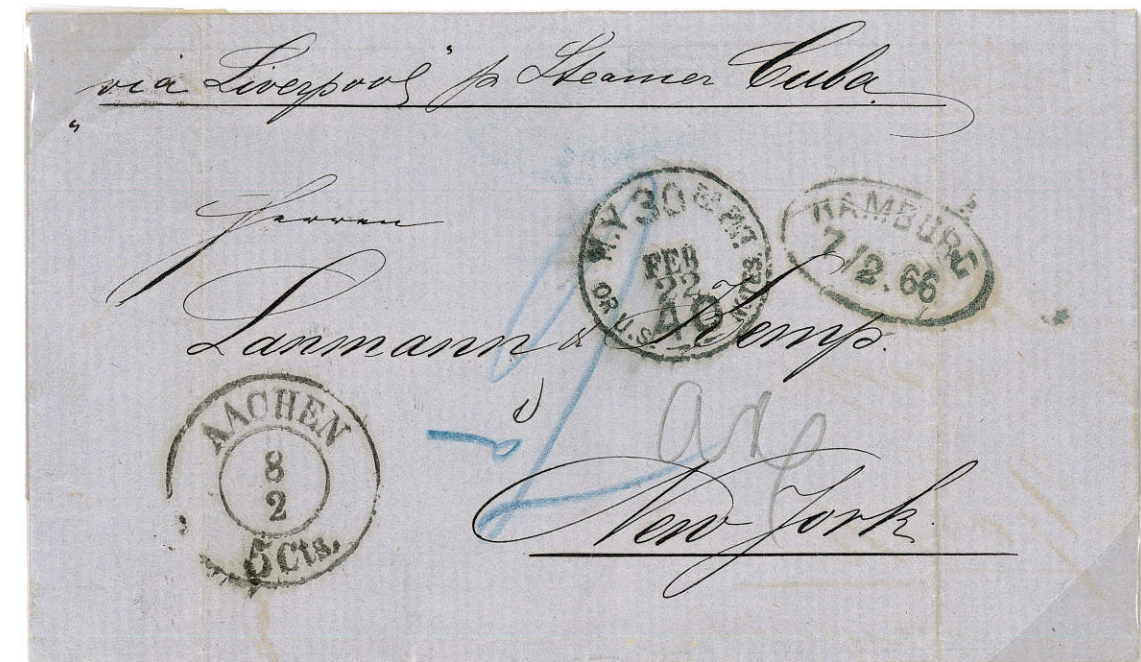 "via Liverpool" p Steamer Cuba
Herren
Lanmann & Kemp.
New York.
N.Y. 30 PKT.
FEB
22
40
OR U.S. NOTES.
HAMBURG
7/2.66
AACHEN
8
2
5 Cts.